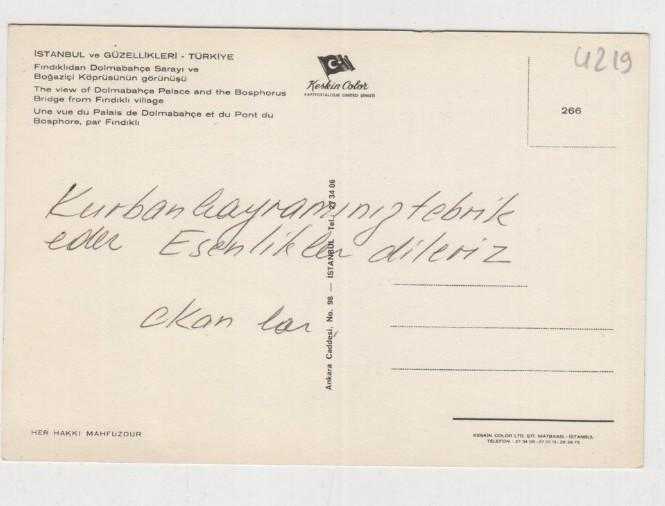 İSTANBUL ve GÜZELLİKLERİ - TÜRKİYE
Fındıklıdan Dolmabahçe Sarayı ve
Boğaziçi Köprüsünün görünüşü
The view of Dolmabahçe Palace and the Bosphorus
Bridge from Fındıklı village
Une vue du Palais de Dolmabahçe et du Pont du
Bosphore, par Fındıklı
Keskin Color
KARTPOSTALCILIK LIMITED ŞİRKETİ
4219
266
Kurban bayramınız tebrik
eder Esenlikler dileriz
Okan lar.
Ankara Caddesi, No. 98 — İSTANBUL Tel.: 27 34 06
HER HAKKI MAHFUZDUR
KESKİN COLOR LTD. ŞTİ. MATBAASI - İSTANBUL
TELEFON :